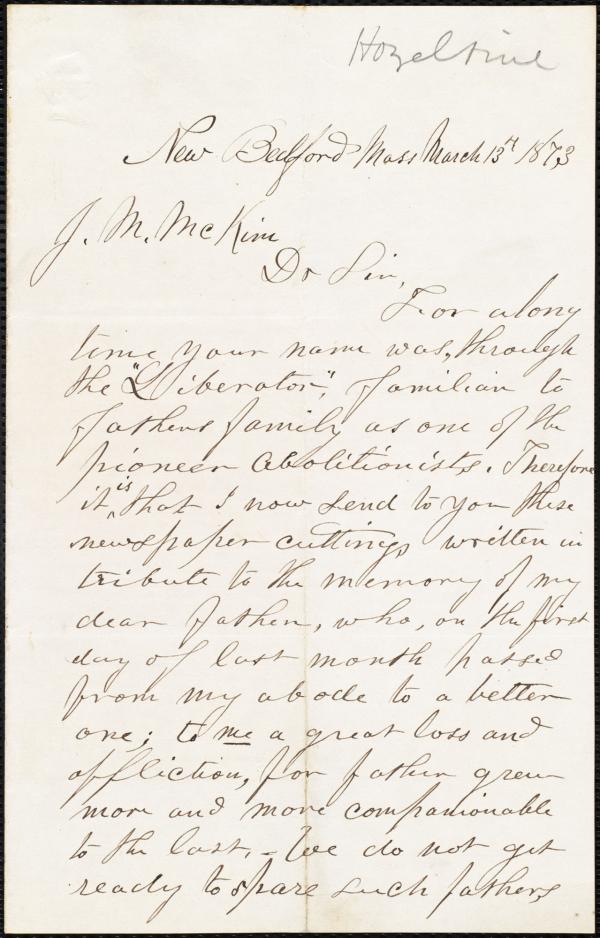 Hazeltine
New Bedford Mass March 13th 1873
J. M. McKim
Dr Sir,
For along
time your name was, through
the "Liberator", familiar to
fathers family as one of the
pioneer abolitionists. Therefore
it is that I now send to you these
newspaper cuttings written in
tribute to the memory of my
dear father, who, on the first
day of last month passed
from my abode to a better
one; to me a great loss and
affliction, for father grew
more and more companionable
to the last, - We do not get
ready to spare such fathers